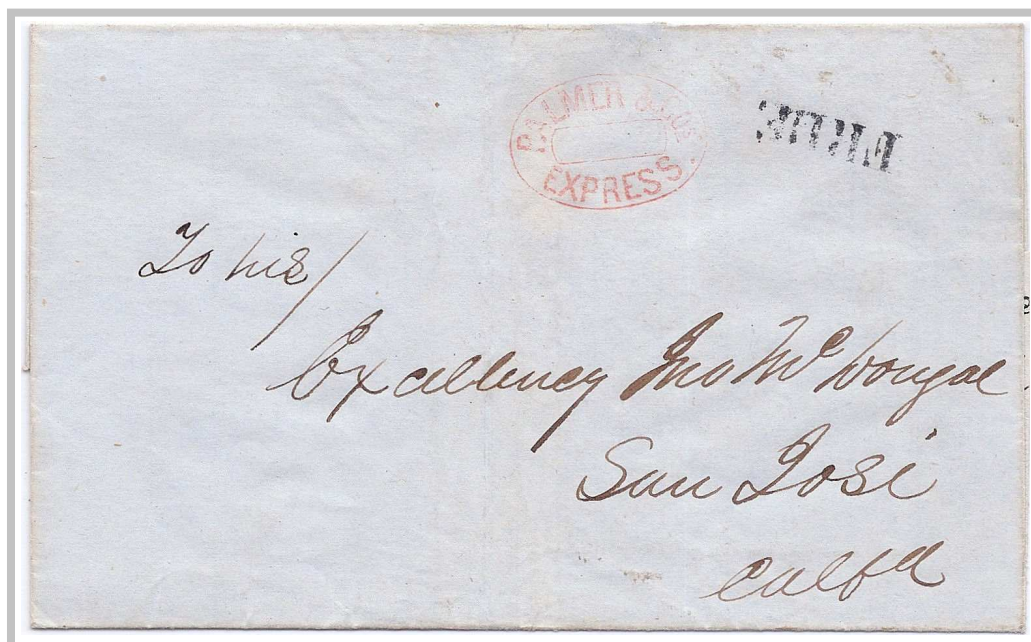 PALMER & CO'S
EXPRESS.
To his/
Excellency Jno McDougal
San José
Calfa